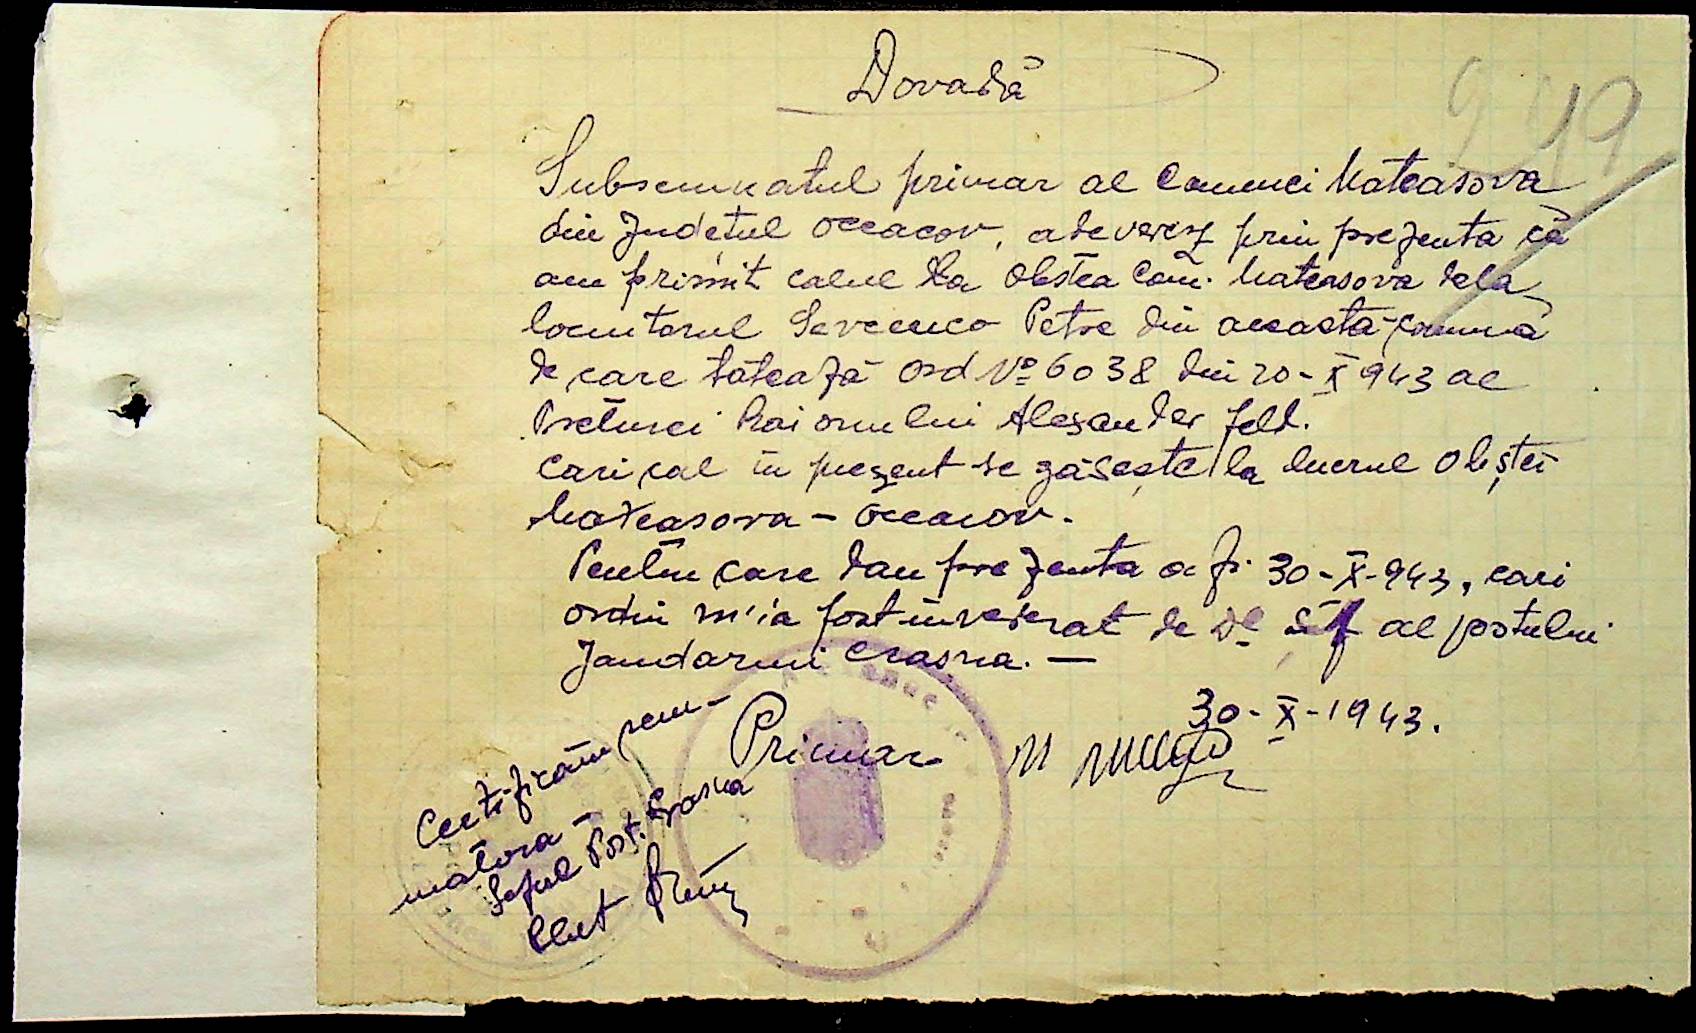 Dovadă
949
Subsemnatul primar al Comunei Mateasova
din Judetul Oceacov, adeverez prin prezenta că
am primit calul la Obstea Com. Mateasova dela
locuitorul Sevcenco Petre din aceasta comună
de care tatează Ord No 6038 din 20-X 943 al
Preturei Raionului Alexander feld.
Cari cal in prezent se găsește la lucrul Obștei
Mateasova - Oceacov.
Pentru care dau prezenta a fi 30-X-943, cari
ordin m'ia fost inrederat de Dl șef al postului
Jandarmi Crasna. —
30-X-1943.
Primar
Certificăm sem-
nătura -
Seful Post. Crasna